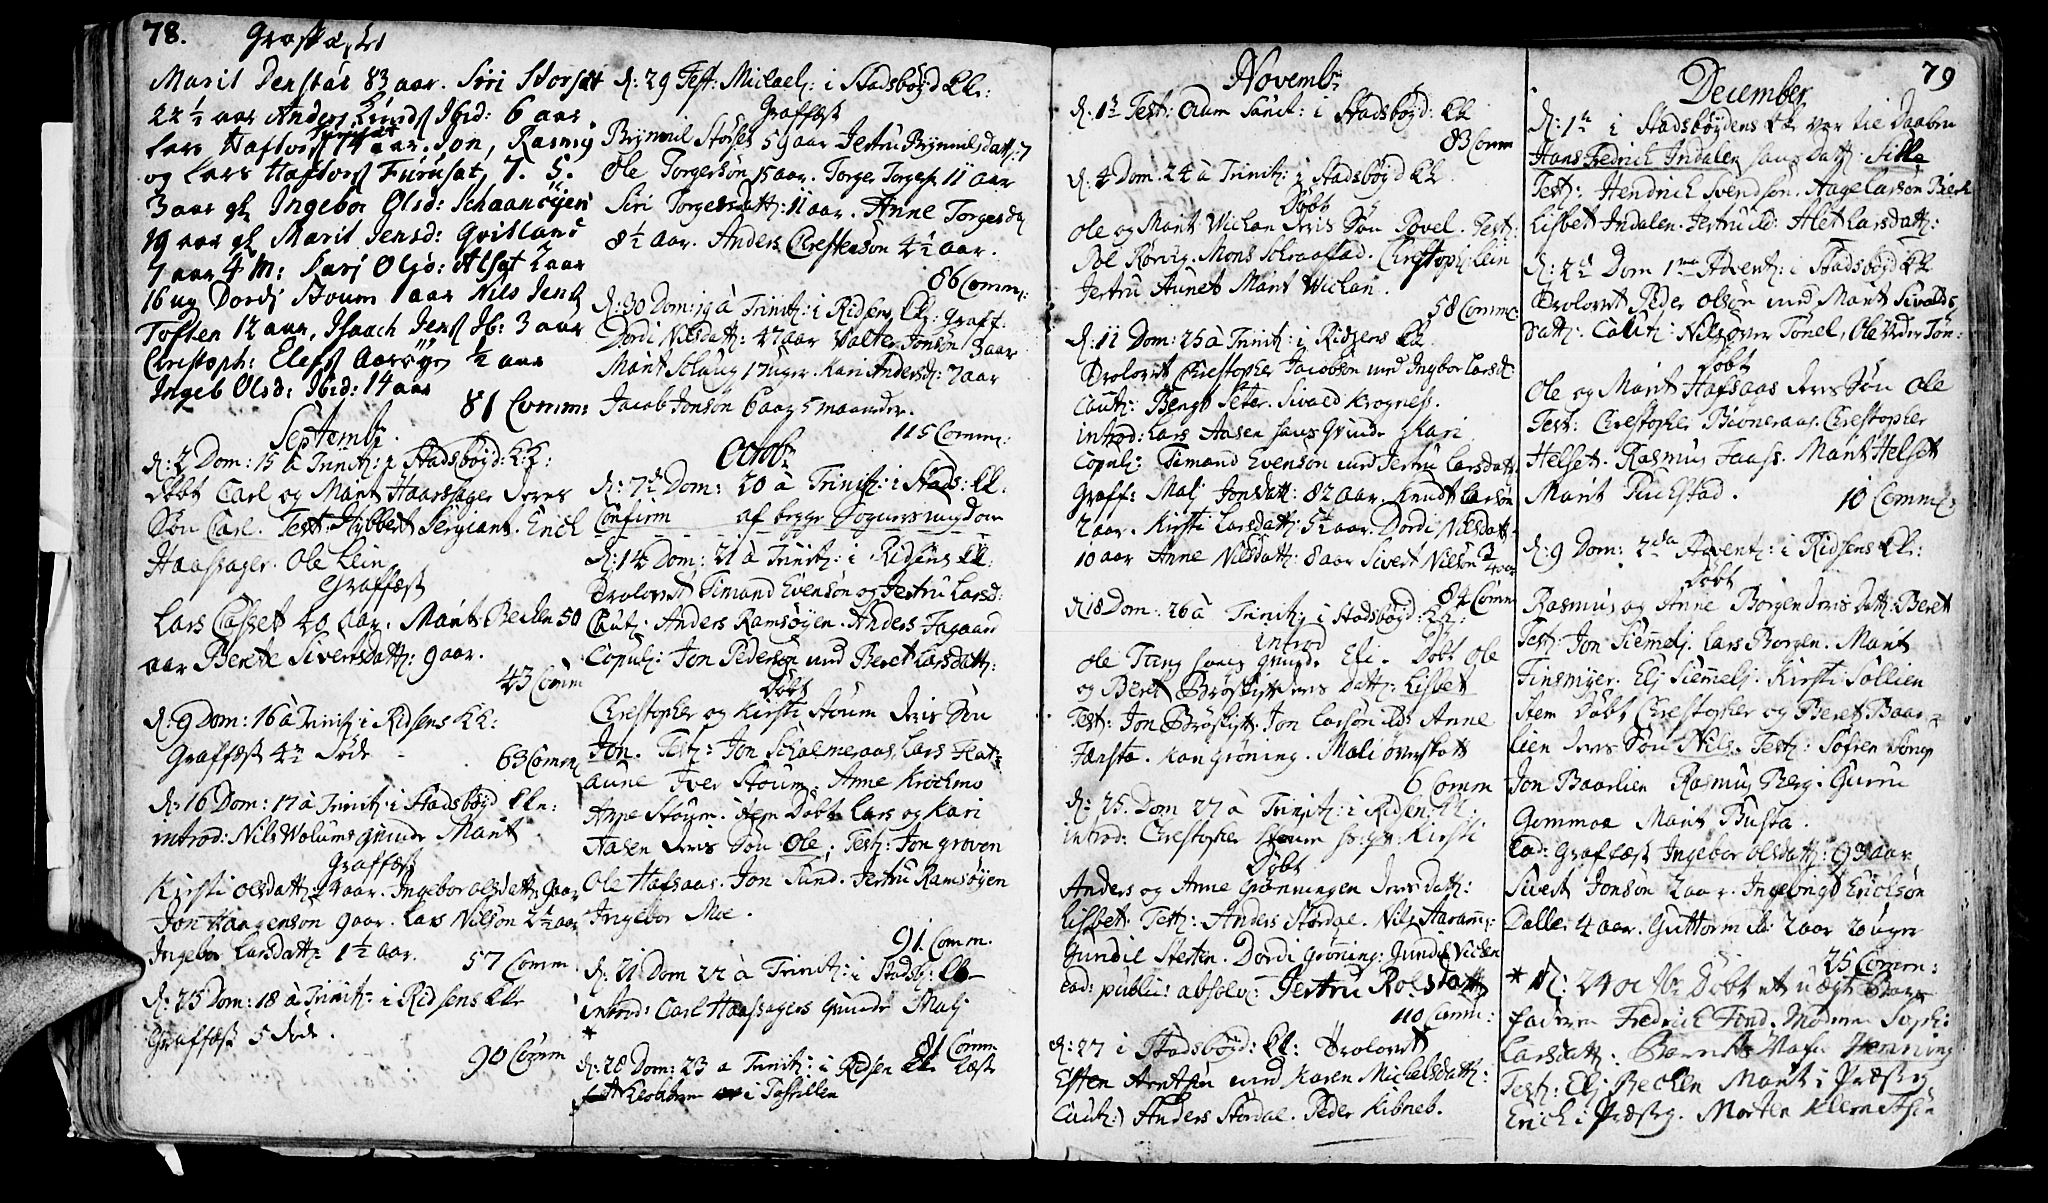 78.
Graffæstet
Marit Denstad 83 aar. Siri Storsæt
22 ½ aar Anders Lunds Ibid: 6 aar
Lars Hafvors Furusæt 74 aar. Jon, Rasmus
og Lars Hafvors Furusat, 7. 5.
3 aar gl Ingebor Olsd: Schaanøyen
19 aar gl Marit Jensd:
7 aar 4 M: Kari Olsd: Alset 2 aar
16 ug Dordi Stoum 1 aar Nils Jens
Toften 12 aar, Isaach Jens Ib: 3 aar
Christoph: Eless ½ aar
Ingeb Olsd: Ibid: 14 aar
81 Comm:
Septemb:
D: 2 Dom: 15 à Trinit: i Stadsbøyd: K:
Døbt Carl og Marit Haarssager deres
Søn Carl. Test: Hybbert Sergiant. Erich
Haassager. Ole Lein
Graffæst
Lars Casset 40 aar. Marit Becken 50
aar Berette Sivertsdatt: 9 aar.
43 Comm
D: 9 Dom: 16 à Trinit: i Ridsens KK:
Graffæst 4re døde
63 Comm
D: 16 Dom: 17 à Trinit: i Stadsbøyd Kk:
introd: Nils Wolums qvinde Marit
Graffæst
Kirsti Olsdatt: aar. Ingebor Olsdatt 9 aar
Jon Haagenson 9 aar. Lars Nilsøn 2½ aar
Ingebor Larsdatt: 1½ aar.
57 Comm
D: 23 Dom: 18 à Trinit: i Ridsens Kk
Graffæst 5 døde.
90 Comm
D: 29 Fest: Michael: i Stadsbøyd Kk:
Graffæst
Brynnil Storset 59 aar Jertru Brynnilsdatt: 7
Ole Torgersøn 15 aar. Torger Torgers 11 aar
Siri Torgersdatt: 11 aar. Anne Torgersda
8½ aar. Anders Christensøn 4½ aar.
86 Comm:
D: 30 Dom: 19 à Trinit: i Ridsens Kk: Graff:
Dordi Nilsdatt: 47 aar Walter Jonsøn 3 aar
Marit Solaug 17 uger. Kari Andersd: 7 aar
Jacob Jonsøn 6 aar 5 maaneder.
115 Comm:
Octobr
D: 7de Dom: 20 à Trinit: i Stads: Kk:
Confirm af begge Sogners ungdom
D: 14 Dom: 21 à Trinit: i Ridsens Kk:
Trolovet Simand Evensøn og Jertru Larsd:
Caut: Anders Ramsøyen. Anders Fagaard
Copul: Jon Pedersen med Beret Larsdatt:
Døbt
Christopher og Kirsti Stoum deres Søn
Jon. Test: Jon Schalmeraas, Lars Flat=
aune Iver Stoum. Anne Krochmo
Anne Stoum. Item Døbt Lars og Kari
Aasen deres Søn Ole; Test: Jon Groven
Ole Hafsaas. Jon Sund. Jertru Ramsøyen
Ingebor Moe.
91 Comm.
D: 21 Dom 22 à Trinit: i Stadsb: Kk
introd: Carl Haassagers qvinde Mali
81 Comm
*
D: 28 Dom: 23 à Trinit: i Ridsen Kk Læst
Klokkeren i Taffellen
79
Novembr
D: 1te Fest: Omn Sanct: i Stadsbøyd: Kk
83 Comm
D: 4 Dom. 24 à Trinit: i Stadsbøyd Kk
Døbt
Ole og Marit Wichan deres Søn Povel. Test:
Pol Rørvig. Mons Schraastad. Christoph: Lein
Jertru Aunet Marit Wichan.
58 Comm:
D: 11 Dom: 25 à Trinit: i Ridsens Kk
Trolovet Christopher Jacobsøn med Ingbor Larsd:
Caut: Bengt Seter. Sivald Krogness.
introd: Lars Aasen hans Qvinde Kari
Copul: Simand Evensøn med Jertru Larsdat:
Graff: Mali Jonsdatt: 82 aar. Knudt Larsøn
2 aar. Kirsti Larsdatt: 5½ aar. Dordi Nilsdatt.
10 aar Anne Nilsdatt: 8 aar Sivert Nilsøn
84 Comm
D 18 Dom: 26 à Trinit: i Stadsbøyd: Kk:
introd
Ole Tung hans qvinde Eli. Døbt Ole
og Beret Brøskift deres datt: Lisbet
Test: Jon Brøskift. Jon Larsøn ibd: Anne
Hansta. Kari Grøning. Mali Øverskott
6 Comm
D: 25. Dom 27 à Trinit: i Ridsen Kk:
introd: Christopher Stoum hs: qv: Kirsti
Døbt
Anders og Anne Grønningen deres datt:
Lisbet. Test: Anders Stordal. Nils Aaramm:
Gundil Slesten. Dordi Grøning: Gundil Vicken
eod: public: absolv: Jertru Rolsdatt:
110 Comm:
D: 27 i Stadsbøyd: Kk: Trolovet
Esten Arntsen med Karen Michelsdatt:
Caut:) Anders Stordal. Peder Kibnes.
December
D: 1te i Stadsbøydens Kk var til Daaben
Hans Fredrich Indalen hans Datt: Sille
Test: Hendrich Svendsøn. Aage Larsøn Bierk
Lisbet Indalen. Jertru ib: Alet Larsdatt:
D: 2d Dom 1ma Advent: i Stadsbøyd Kk
Trolovet Peder Olsøn med Marit Sivalds
datt: Caut: Nils Tønel, Ole Tøn:
Døbt
Ole og Marit Hafsaas deres Søn Ole
Test: Christopher Biøneraas. Christopher
Helset. Rasmus Faass. Marit Helset
Marit Ruckstad.
10 Comm:
D: 9 Dom: 2da Advent: i Ridsens Kk:
Døbt
Rasmus og Anne Borgen deres datt: Beret
Test: Jon Siemmeli. Lars Borgen. Marit
Finsmyer. Eli Siemmeli. Kirsti Sollien
Item Døbt Christopher og Beret Baar=
lien deres Søn Nils. Test: Sofren
Jon Baarlien Rasmus Berg. Gurru
Gommoa Marit Busta.
Eod: Graffæst Ingebor Olsdatt: 93 aar
Sivert Jonsøn 2 aar. Ingebrigt Erichsøn
Dalle: 4 aar. Guttorm ib: 2 aar 20 uger
25 Comm:
* D: 24 Døbt et uægt Barn
Faderen Fredrich Find. Moderen Soph:
Larsdatt: Barnets Nafn Henning
Test: Eli Becken Marit i Præsteg.
Erich i Præsteg. Morten Klemetsen